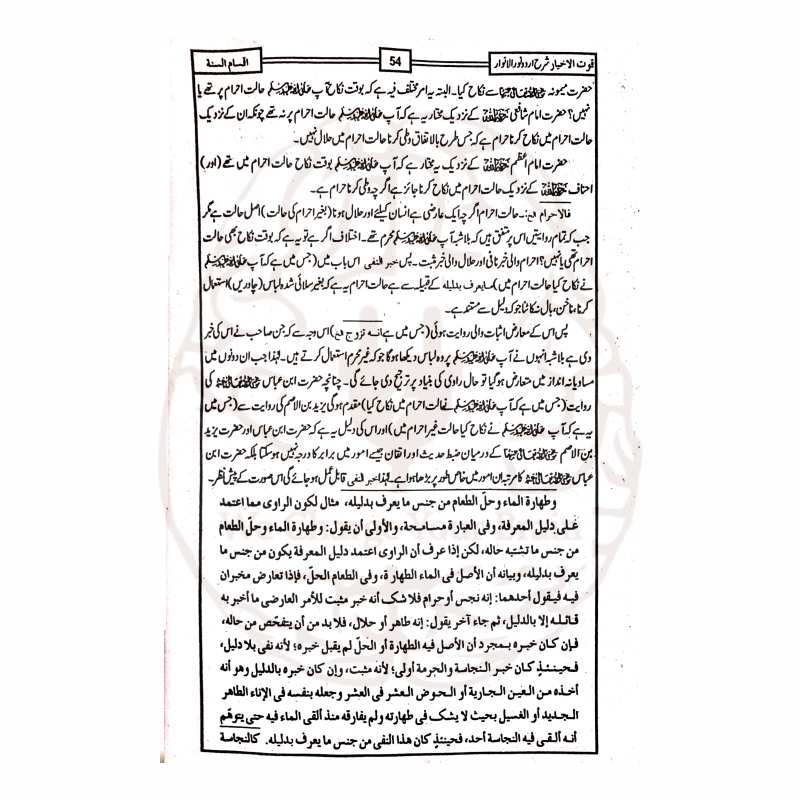 قوت الاخیار شرح اردو نور الانوار
54
اقسام السنة
حضرت میمونہ رضی اللہ تعالیٰ عنہا سے نکاح کیا۔ البتہ یہ امر مختلف فیہ ہے کہ بوقت نکاح آپ صلی اللہ علیہ وسلم حالت احرام پر تھے یا
نہیں؟ حضرت امام شافعی کے نزدیک مختار یہ ہے کہ آپ صلی اللہ علیہ وسلم حالت احرام پر نہ تھے چونکہ ان کے نزدیک
حالت احرام میں نکاح کرنا حرام ہے کہ جس طرح بالاتفاق وطی کرنا حالت احرام میں حلال نہیں۔
حضرت امام اعظم کے نزدیک یہ مختار ہے کہ آپ صلی اللہ علیہ وسلم بوقت نکاح حالت احرام میں تھے (اور)
احناف کے نزدیک حالت احرام میں نکاح کرنا جائز ہے اگر چہ وطی کرنا حرام ہے۔
فالاحرام الخ۔ حالت احرام اگر چہ ایک عارضی ہے انسان کیلئے اور حلال ہونا (بغیر احرام کی حالت) اصل حالت ہے مگر
جب کہ تمام روایتیں اس پر متفق ہیں کہ بلاشبہ آپ صلی اللہ علیہ وسلم محرم تھے۔ اختلاف اگر ہے تو یہ ہے کہ بوقت نکاح بھی حالت
احرام تھی یا نہیں؟ احرام والی خبر نافی اور حلال والی خبر مثبت۔ پس خبر النفی اس باب میں (جس میں ہے کہ آپ صلی اللہ علیہ وسلم
نے نکاح کیا حالت احرام میں) مما یعرف بدلیلہ کے قبیلہ سے ہے حالت احرام یہ ہے کہ بغیر سلائی شدہ لباس (چادریں) استعمال
کرنا، ناخن، بال نہ کاٹنا جو کہ دلیل سے مستند ہے۔
پس اس کے معارض اثبات والی روایت ہوئی (جس میں ہے انہ تزوج الخ) اس وجہ سے کہ جن صاحب نے اس کی خبر
دی ہے بلاشبہ انہوں نے آپ صلی اللہ علیہ وسلم پر وہ لباس دیکھا ہوگا جو کہ غیر محرم استعمال کرتے ہیں۔ لہٰذا جب ان دونوں میں
مساویانہ انداز میں متعارض ہوگیا تو حال راوی کی بنیاد پر ترجیح دی جائے گی۔ چنانچہ حضرت ابن عباس رضی اللہ تعالیٰ عنہ کی
روایت (جس میں ہے کہ آپ صلی اللہ علیہ وسلم نے حالت احرام میں نکاح کیا) مقدم ہوگی یزید بن الاصم کی روایت سے (جس میں
یہ ہے کہ آپ صلی اللہ علیہ وسلم نے نکاح کیا حالت غیر احرام میں) اور اس کی دلیل یہ ہے کہ حضرت ابن عباس اور حضرت یزید
بن الاصم کے درمیان ضبط حدیث اور اتقان جیسے امور میں برابر کا درجہ نہیں ہوسکتا بلکہ حضرت ابن
عباس رضی اللہ تعالیٰ عنہ کا مرتبہ ان امور میں خاص طور پر بڑھا ہوا ہے۔ لہٰذا خبر النفی قابل عمل ہو جائے گی اس صورت کے پیش نظر۔
وطهارة الماء وحلّ الطعام من جنس ما يعرف بدليله، مثال لكون الراوى مما اعتمد
على دليل المعرفة، وفى العبارة مسامحة، والأولى أن يقول: وطهارة الماء وحلّ الطعام
من جنس ما تشتبه حاله، لكن إذا عرف أن الراوى اعتمد دليل المعرفة يكون من جنس ما
يعرف بدليله، وبيانه أن الأصل فى الماء الطهارة، وفى الطعام الحلّ، فإذا تعارض مخبران
فيه فيقول أحدهما: إنه نجس أو حرام فلا شك أنه خبر مثبت للأمر العارضى ما أخبر به
قائله إلا بالدليل، ثم جاء آخر يقول: إنه طاهر أو حلال، فلا بد من أن يتفحّص من حاله،
فإن كان خبره بمجرد أن الأصل فيه الطهارة أو الحلّ لم يقبل خبره؛ لأنه نفى بلا دليل،
فحينئذٍ كان خبر النجاسة والحرمة أولى؛ لأنه مثبت، وإن كان خبره بالدليل وهو أنه
أخذه من العين الجارية أو الحوض العشر فى العشر وجعله بنفسه فى الإناء الطاهر
الجديد أو الغسيل بحيث لا يشك فى طهارته ولم يفارقه منذ ألقى الماء فيه حتى يتوهّم
أنه ألقى فيه النجاسة أحد، فحينئذٍ كان هذا النفى من جنس ما يعرف بدليله. كالنجاسة